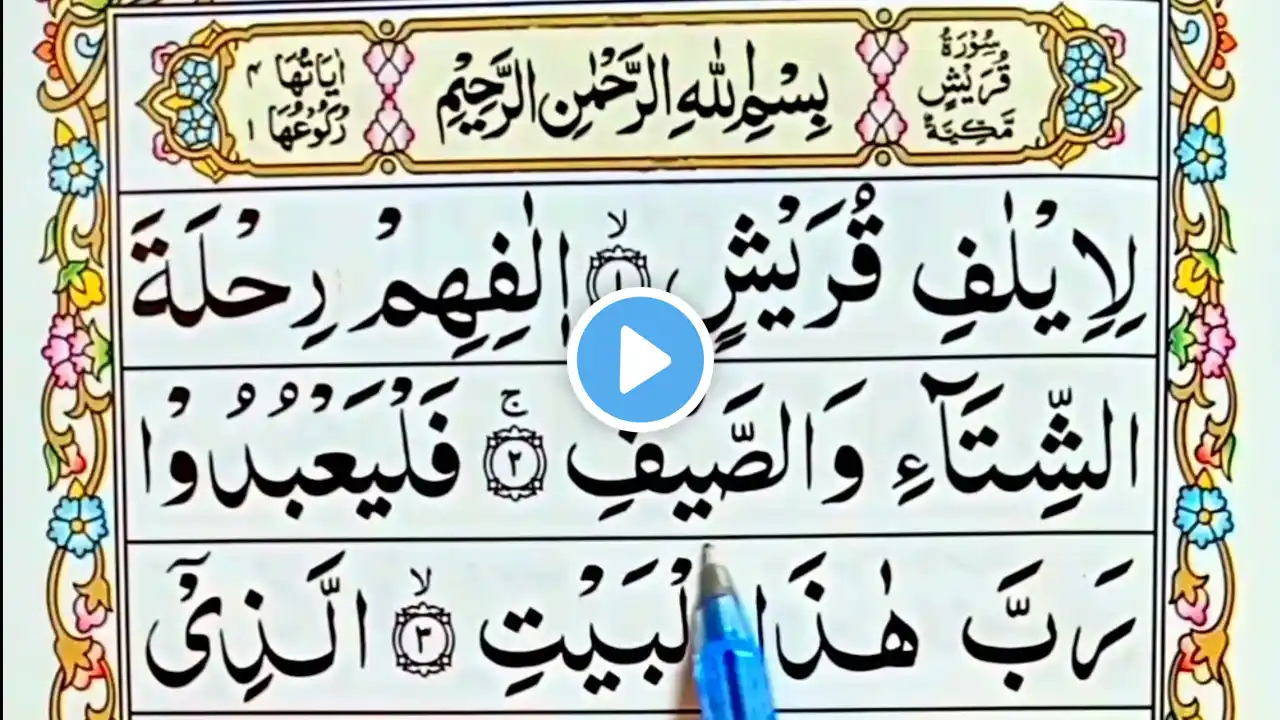 سُوْرَةُ
قُرَيْشٍ
مَّكِّيَّةٌ
بِسْمِ اللّٰهِ الرَّحْمٰنِ الرَّحِيْمِ
اٰيَاتُهَا ۴
رُكُوْعُهَا ۱
لِاِيْلٰفِ قُرَيْشٍ ۙ﴿۱﴾ اٖلٰفِهِمْ رِحْلَةَ
الشِّتَآءِ وَالصَّيْفِ ۚ﴿۲﴾ فَلْيَعْبُدُوْا
رَبَّ هٰذَا الْبَيْتِ ۙ﴿۳﴾ الَّذِيْۤ